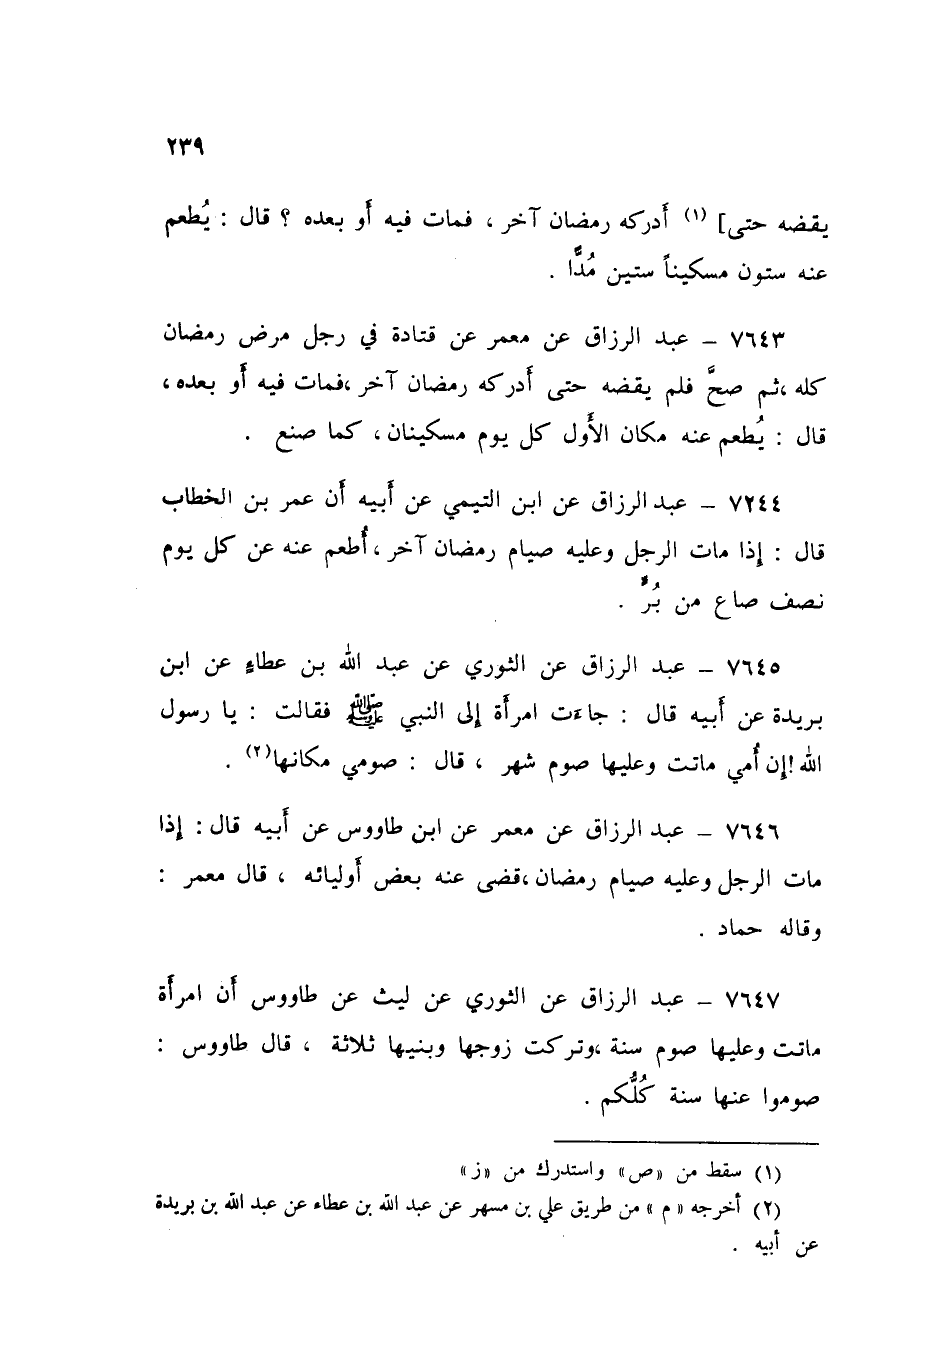 ٢٣٩
يقضه حتى] (١) أَدركه رمضان آخر ، فمات فيه أَو بعده ؟ قال : يُطعم
عنه ستون مسكيناً ستين مُدًّا .
٧٦٤٣ – عبد الرزاق عن معمر عن قتادة في رجل مرض رمضان
كله ،ثم صحَّ فلم يقضه حتى أَدركه رمضان آخر ،فمات فيه أَو بعده ،
قال : يُطعم عنه مكان الأَول كل يوم مسكينان ، كما صنع .
٧٢٤٤ – عبد الرزاق عن ابن التيمي عن أَبيه أَن عمر بن الخطاب
قال : إِذا مات الرجل وعليه صيام رمضان آخر ،أُطعم عنه عن كل يوم
نصف صاع من بُرٍّ .
٧٦٤٥ – عبد الرزاق عن الثوري عن عبد الله بن عطاءٍ عن ابن
بريدة عن أَبيه قال : جاءَت امرأَة إِلى النبي ﷺ فقالت : يا رسول
الله !إِن أُمي ماتت وعليها صوم شهر ، قال : صومي مكانها(٢) .
٧٦٤٦ – عبد الرزاق عن معمر عن ابن طاووس عن أَبيه قال : إِذا
مات الرجل وعليه صيام رمضان ،قضى عنه بعض أَوليائه ، قال معمر :
وقاله حماد .
٧٦٤٧ – عبد الرزاق عن الثوري عن ليث عن طاووس أَن امرأَة
ماتت وعليها صوم سنة ،وتركت زوجها وبنيها ثلاثة ، قال طاووس :
صوموا عنها سنة كُلُّكم .
(١) سقط من «ص» واستدرك من «ز»
(٢) أخرجه «م» من طريق علي بن مسهر عن عبد الله بن عطاء عن عبد الله بن بريدة
عن أبيه .